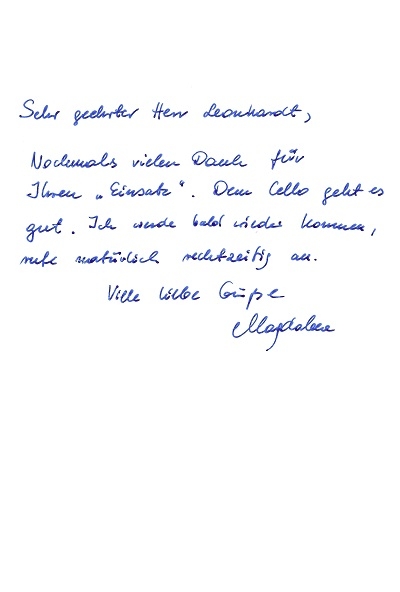 Sehr geehrter Herr Leonhardt,
Nochmals vielen Dank für
Ihren „Einsatz“. Dem Cello geht es
gut. Ich werde bald wieder kommen,
rufe natürlich rechtzeitig an.
Viele liebe Grüße
Magdalena